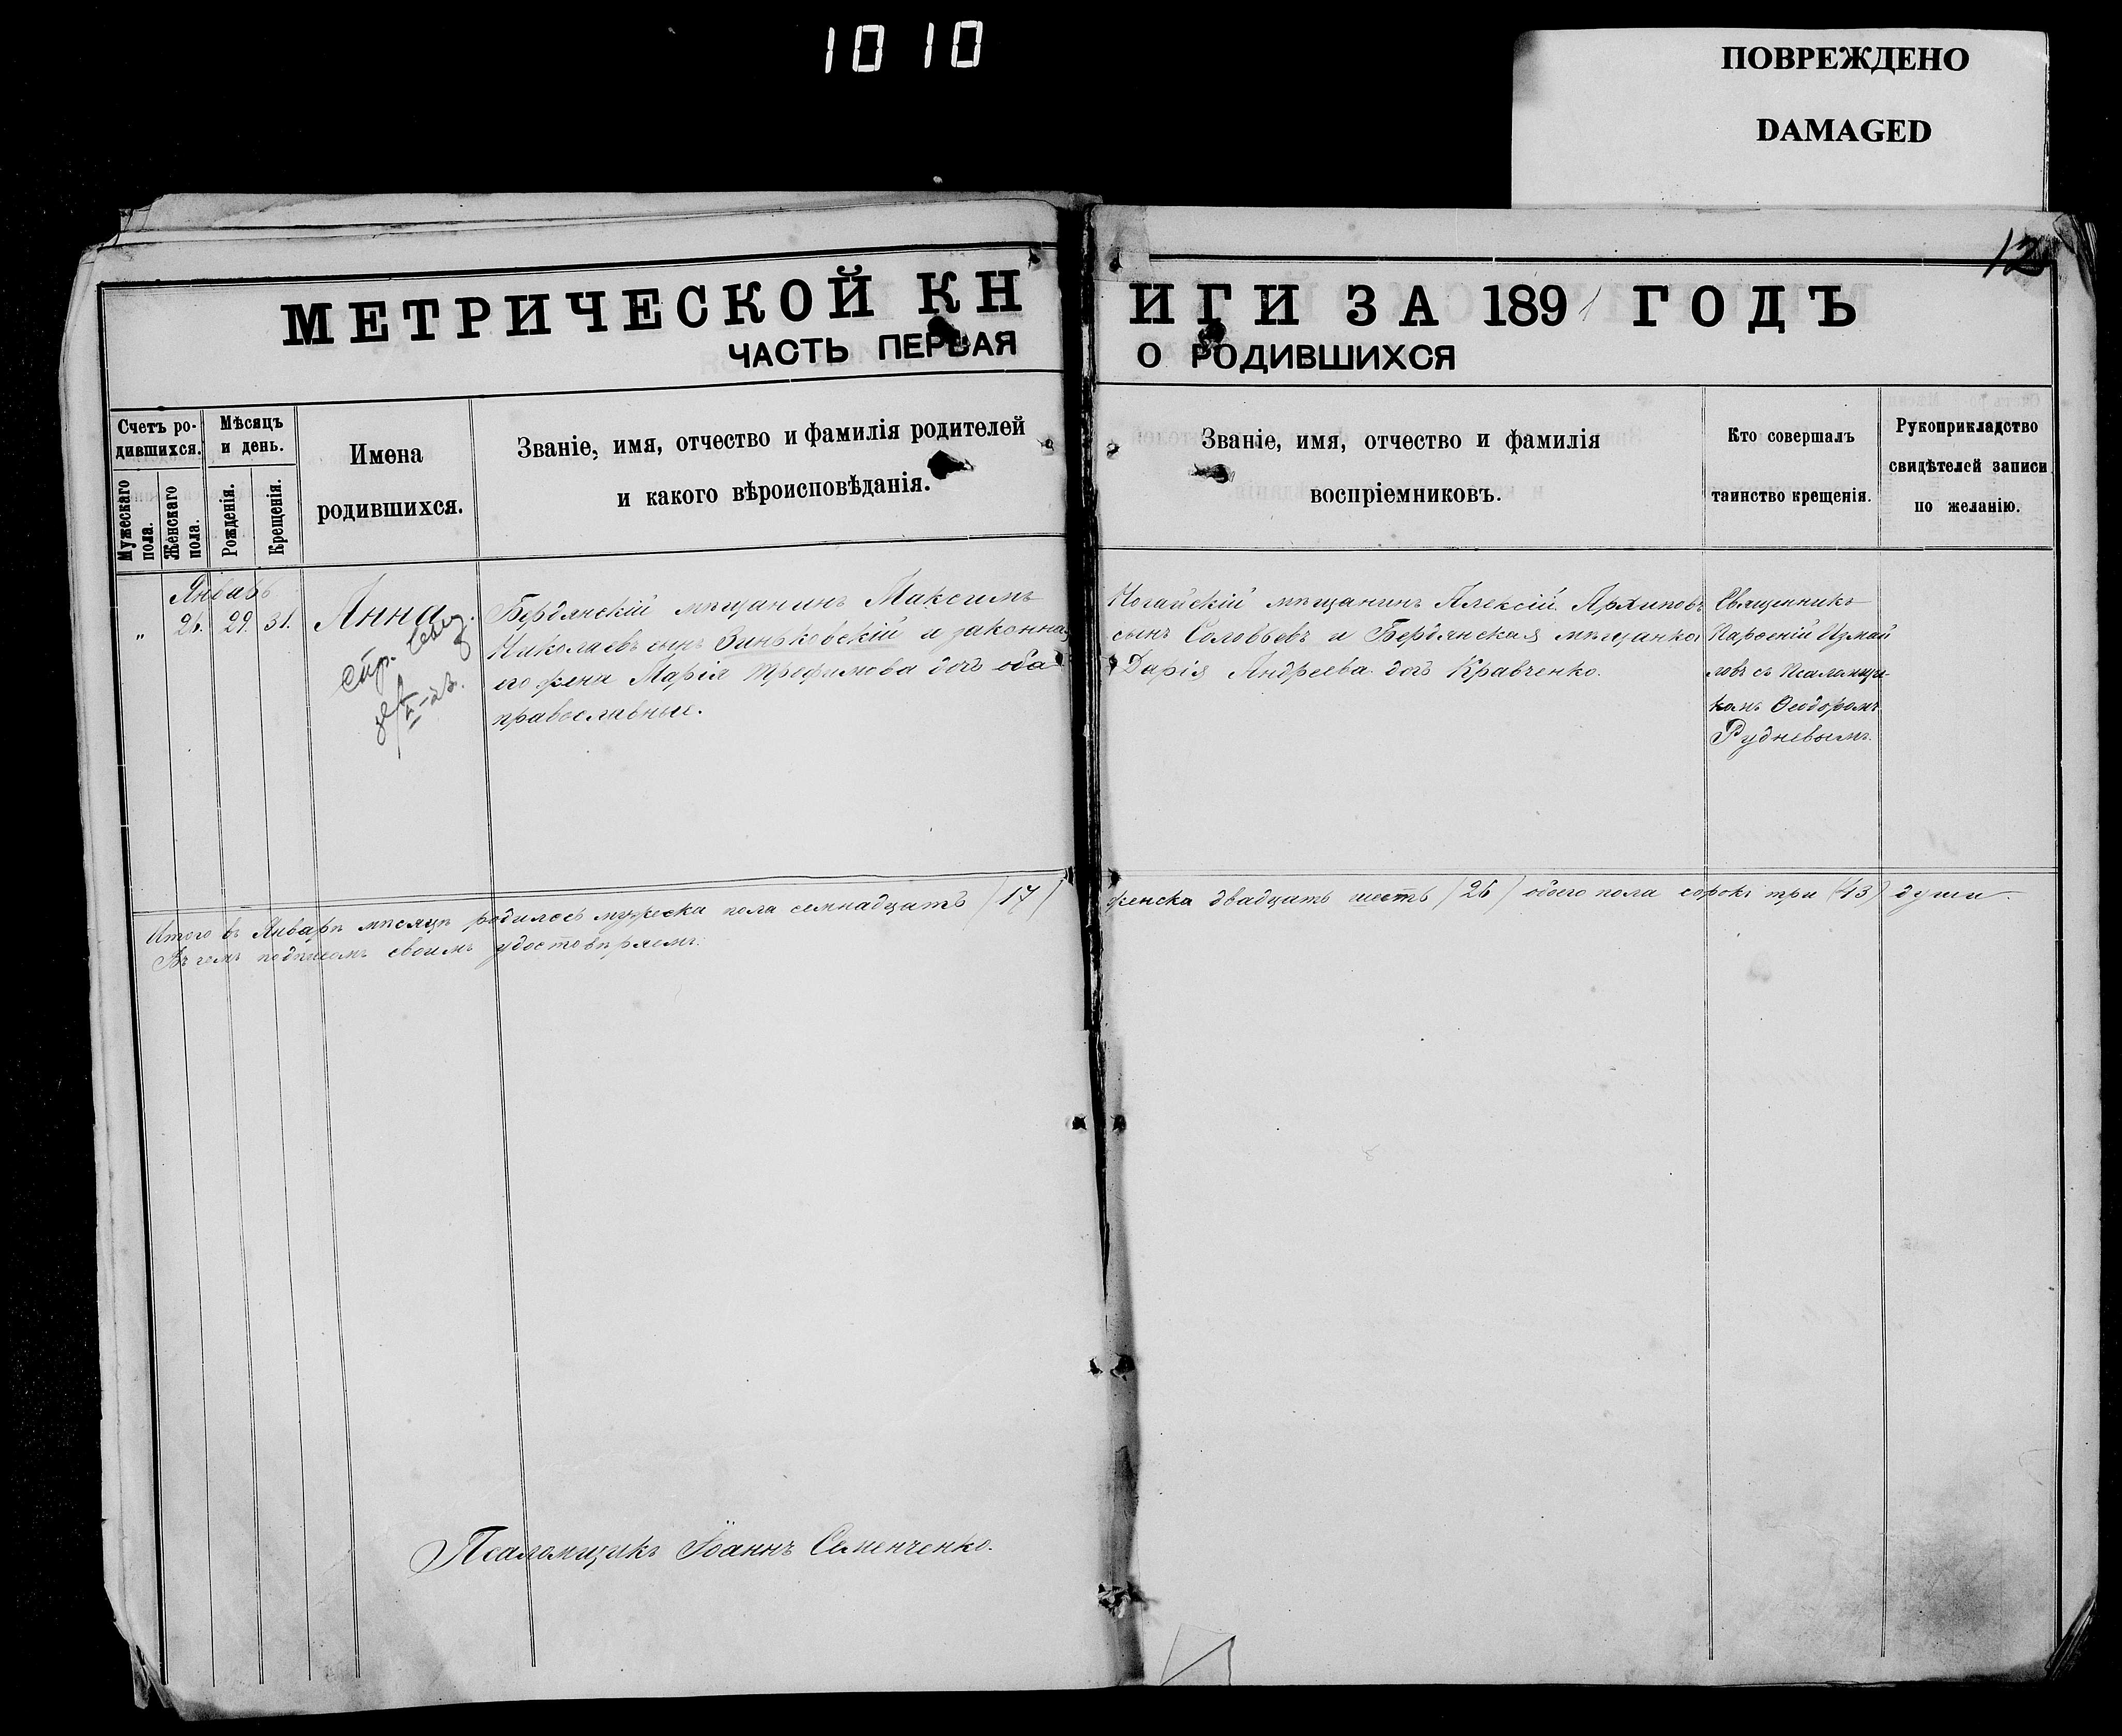 1010
ПОВРЕЖДЕНО
DAMAGED
12
МЕТРИЧЕСКОЙ КН
ИГИ ЗА 1891 ГОДЪ
ЧАСТЬ ПЕРВАЯ
О РОДИВШИХСЯ
Счетъ ро-
дившихся.
Мужескаго
пола.
Женскаго
пола.
Мѣсяцъ
и день.
Рожденія.
Крещенія.
Имена
родившихся.
Званіе, имя, отчество и фамилія родителей
и какого вѣроисповѣданія.
Званіе, имя, отчество и фамилія
воспріемниковъ.
Кто совершалъ
таинство крещенія.
Рукоприкладство
свидѣтелей записи
по желанію.
Январь
" 26. 29. 31. Анна.
Бердянскій мѣщанинъ Максимъ
Николаевъ сынъ Зиньковскій и законная
его жена Марія Трофимова дочь оба
православные.
Ногайскій мѣщанинъ Алексій Архиповъ
сынъ Соловьевъ и Бердянская мѣщанка
Дарія Андреева дочь Кравченко.
Священникъ
Парѳеній Измай
ловъ съ Псаломщи-
комъ Ѳеодоромъ
Рудневымъ.
Итого въ Январѣ мѣсяцѣ родилось мужеска пола семнадцать /17/
женска двадцать шесть /26/ обоего пола сорокъ три (43) души.
Въ чемъ подписомъ своимъ удостовѣряемъ:
Псаломщикъ Іоаннъ Семенченко.